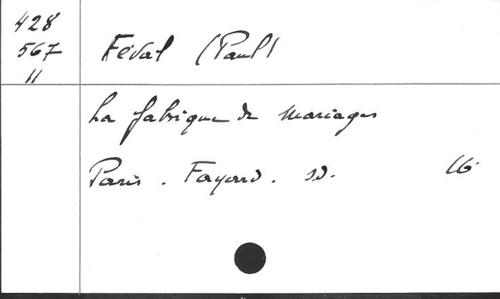 428
567
11
Féval (Paul)
La fabrique de mariages
Paris. Fayard. s.d. 16